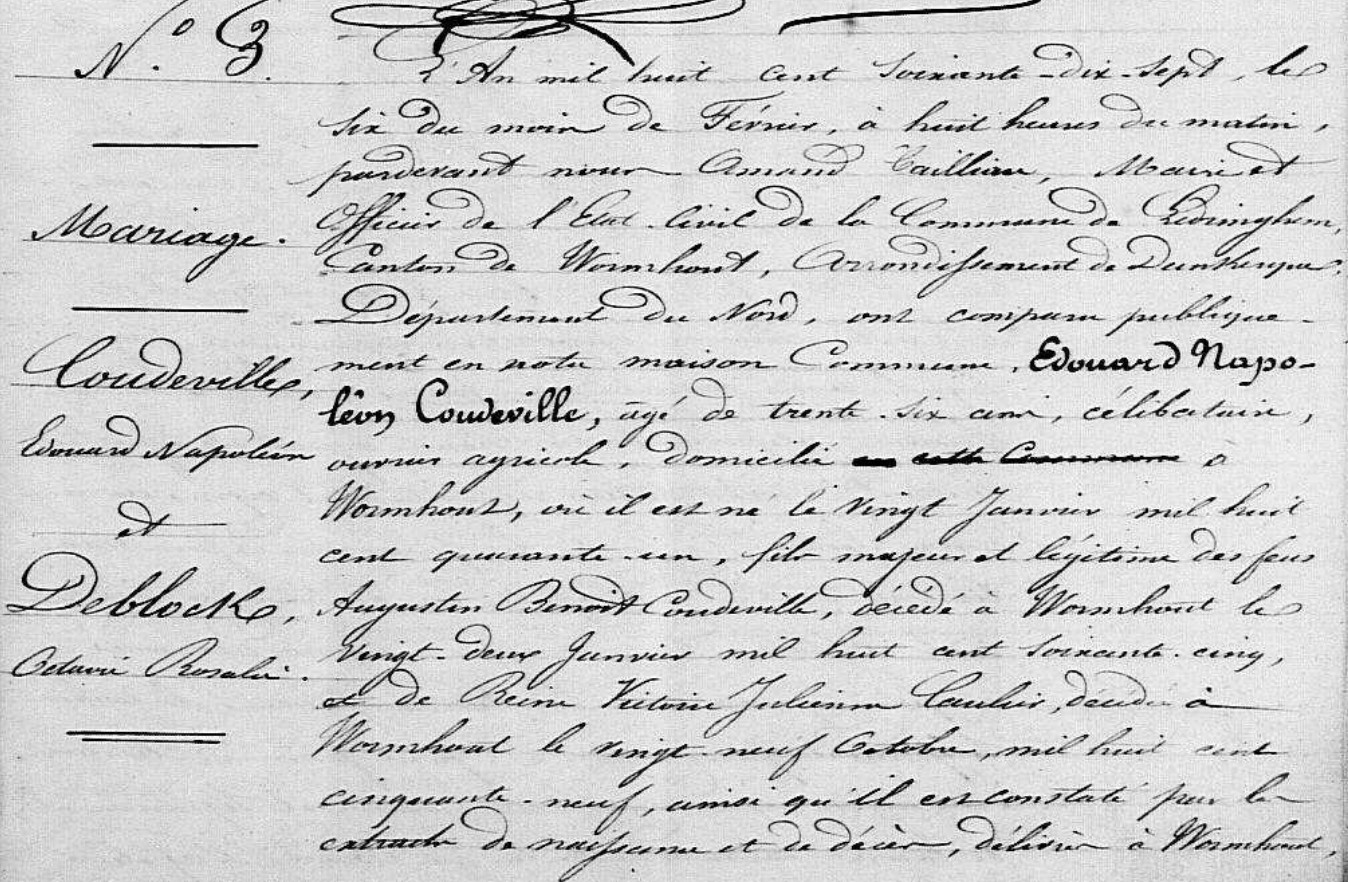 N.º 3.
Mariage.
Coudeville,
Edouard Napoléon
et
Deblock,
Octavie Rosalie.
L'An mil huit cent soixante-dix-sept, le
six du mois de Février, à huit heures du matin,
pardevant nous Amand Taillieu, Maire et
Officier de l'Etat-Civil de la Commune de Ledringhem,
Canton de Wormhout, Arrondissement de Dunkerque,
Département du Nord, ont comparu publique-
ment en notre maison Commune, Edouard Napo-
léon Coudeville, âgé de trente-six ans, célibataire,
ouvrier agricole, domicilié en cette Commune à
Wormhout, où il est né le vingt Janvier mil huit
cent quarante-un, fils majeur et légitime des feus
Augustin Benoit Coudeville, décédé à Wormhout le
vingt-deux Janvier mil huit cent soixante-cinq,
et de Reine Victoire Julienne décédée à
Wormhout le vingt-neuf Octobre, mil huit cent
cinquante-neuf, ainsi qu'il est constaté par les
extraits de naissance et de décès, délivrés à Wormhout,